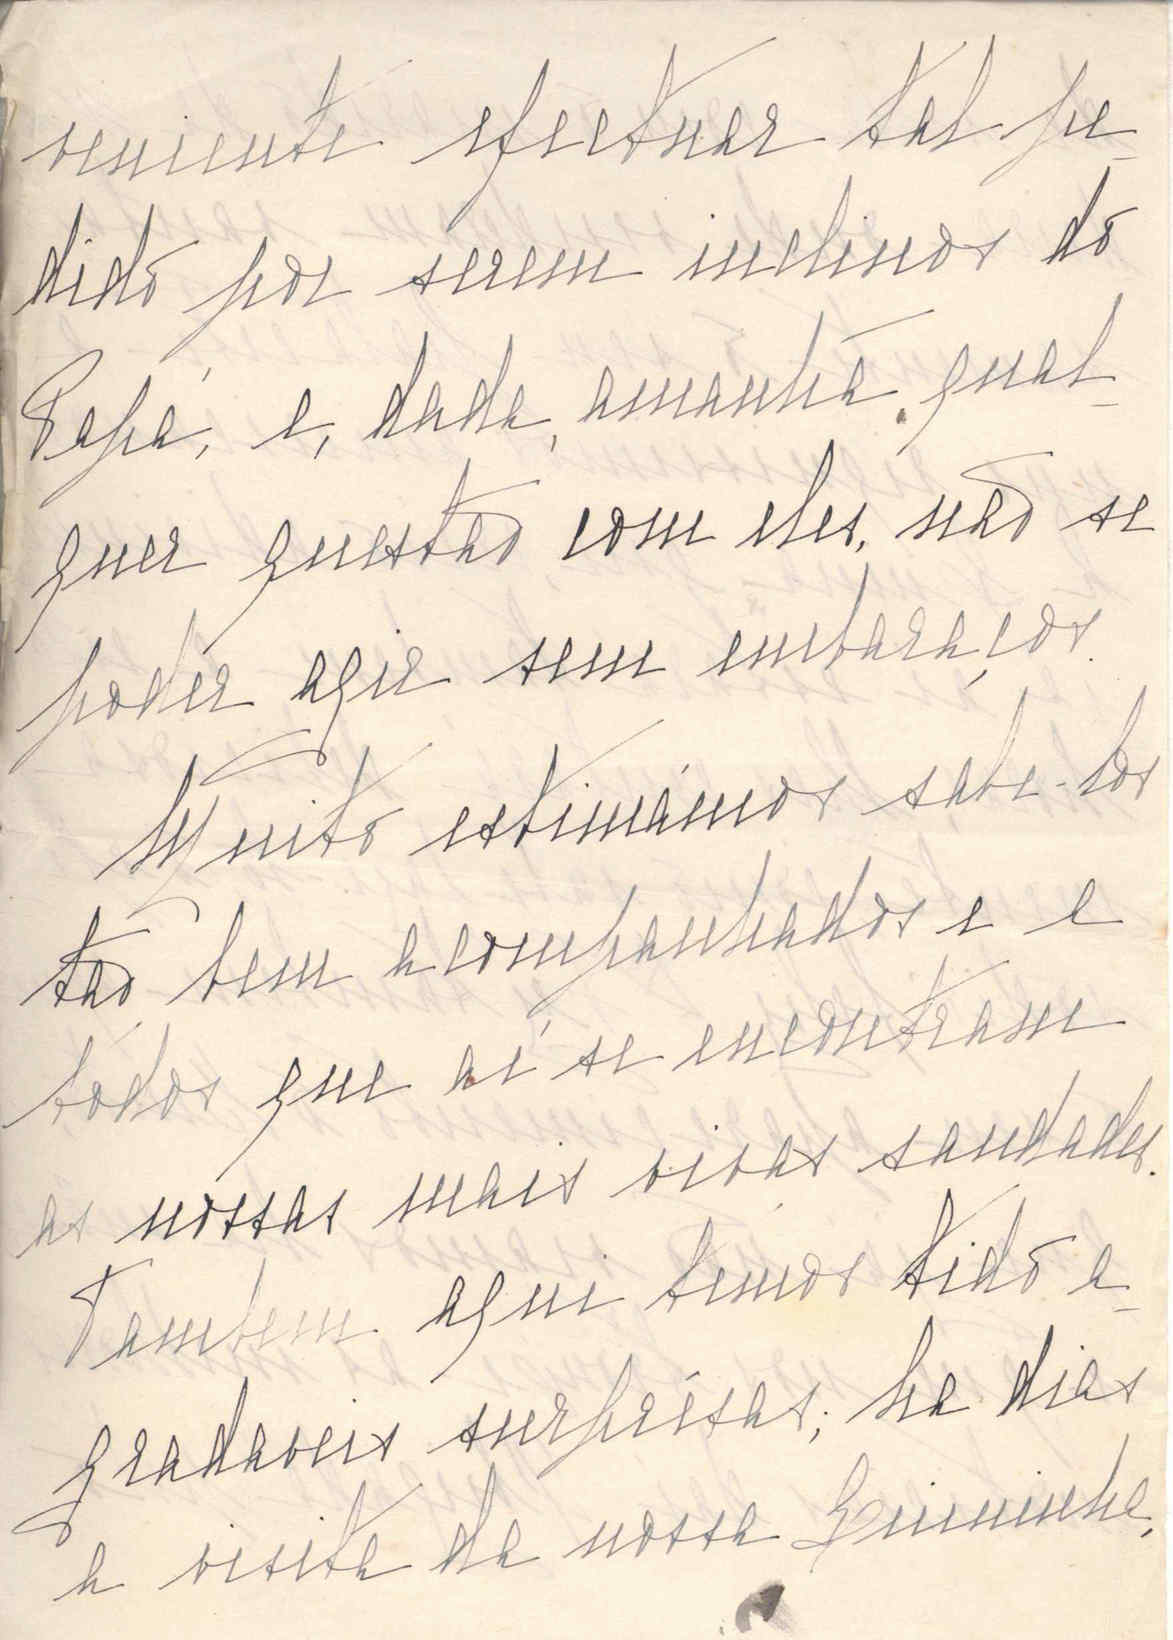 veniente efectuar tal pe-
dido por serem inclinos do
Papá, e, dada, amanhã, qual-
quer questão com eles, não se
poder agir sem embaraços.
Muito estimámos sabe-los
tão bem acompanhados e a
todos que aí se encontram
as nossas mais vivas saudades.
Tambem aqui temos tido a-
gradaveis surprêsas; ha dias
a visita da nossa